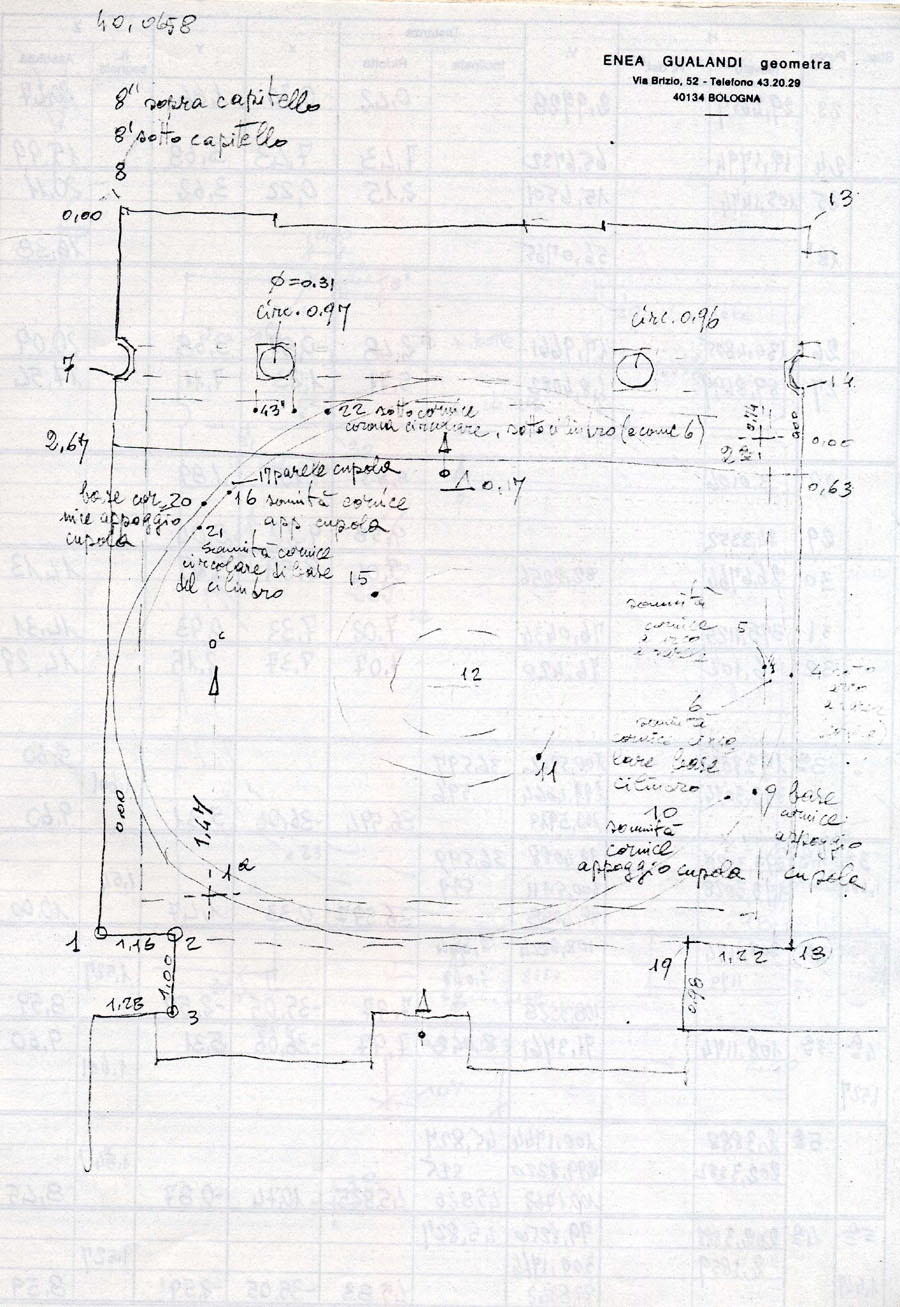 40,0658
ENEA GUALANDI geometra
Via Brizio, 52 - Telefono 43.20.29
40134 BOLOGNA
8" sopra capitello
8' sotto capitello
8
0,00
13
φ=0.31
circ. 0.97
circ. 0.96
7
14
43
22 sotto cornice
corona circolare, sotto cilindro (e come 6)
0,00
0,00
2,67
17 parete cupola
Δ 0,17
0,63
base cor 20
nice appoggio
cupola
16 somità cornice
app cupola
21
somità cornice
circolare di base
del cilindro
15
somità
cornice
5
12
6
somità
cornice circo
lare base
cilindro
11
9 base
cornice
appoggio
cupola
10
somità
cornice
appoggio cupola
0,00
1.47
1a
1
1,16
2
19
1,22
13
1,00
0,98
1,28
3